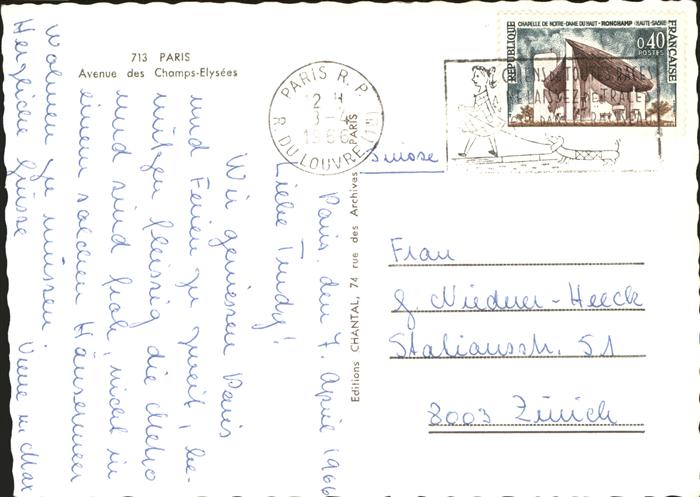 713 PARIS
Avenue des Champs-Elysées
PARIS R. P.
12 H
8-4
1966
R. DU LOUVRE (1er)
PARIS
CHAPELLE DE NOTRE-DAME DU HAUT - RONCHAMP (HAUTE-SAÔNE)
RÉPUBLIQUE FRANÇAISE
0,40
POSTES
Editions CHANTAL, 74 rue des Archives - PARIS
Paris, den 7. April 1966
Liebe Trudy!
Wir geniessen Paris
und Ferien zu zweit, be-
nützen fleissig die Metro
und sind froh, nicht in
einem solchen Häusermeer
wohnen zu müssen.
Herzliche Grüsse
Vrene u. Max
Suisse
Frau
G. Niederer-Heeck
Stationsstr. 51
8003 Zürich